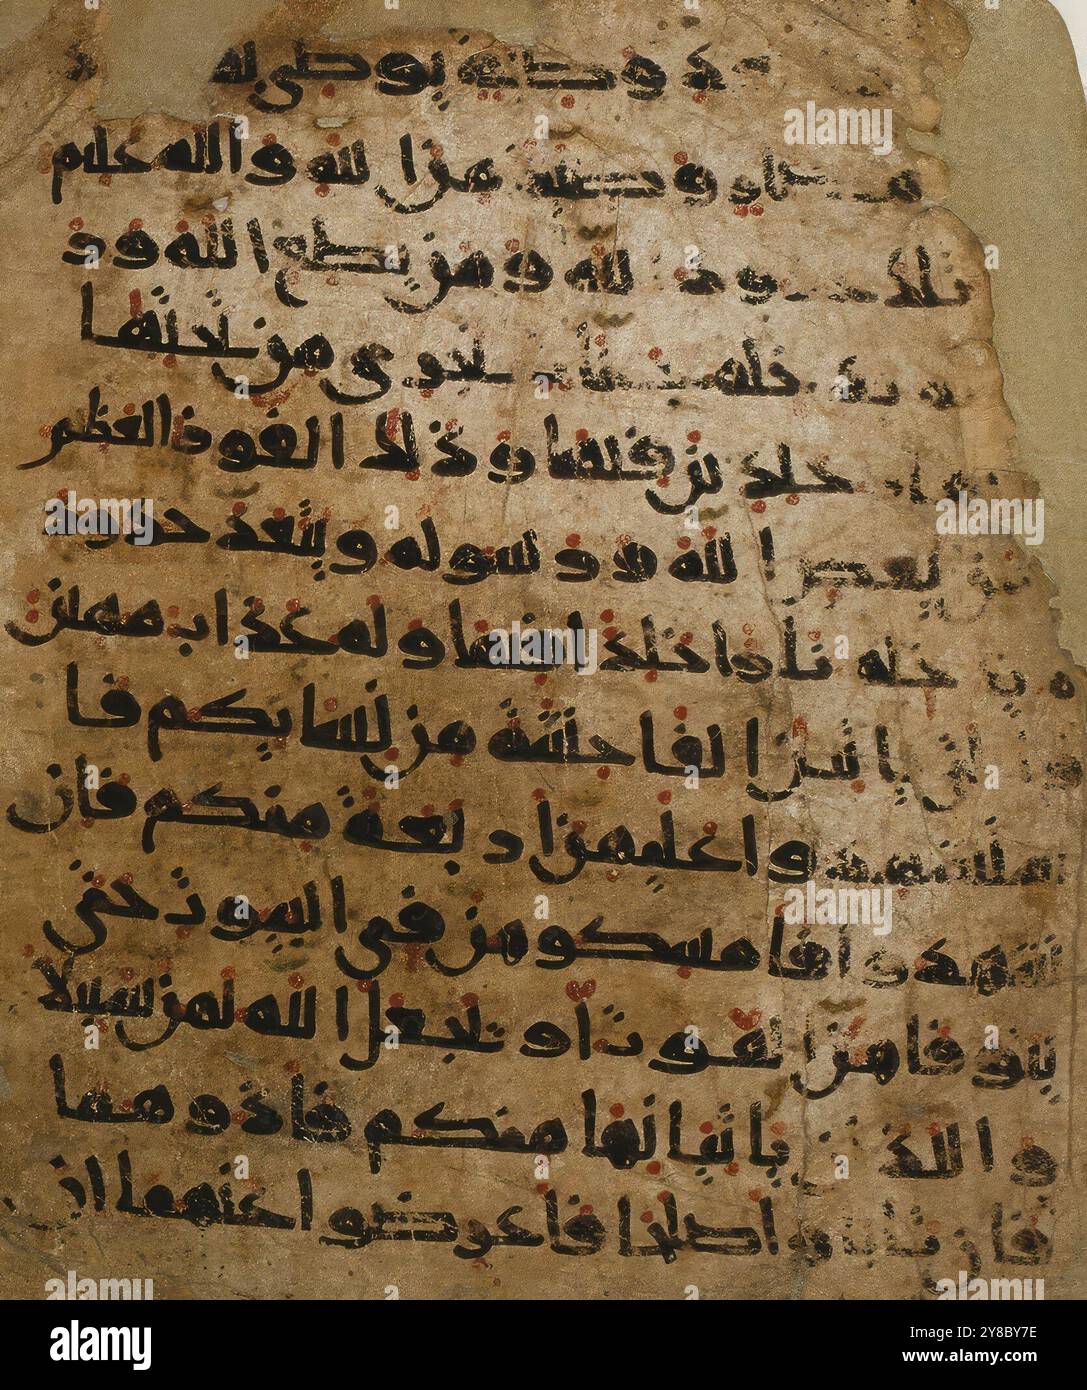 وصية يوصى بها
مضار وصية من الله والله عليم
تلك حدود الله ومن يطع الله ور
سوله يدخله جنت تجرى من تحتها
خلدين فيها وذلك الفوز العظيم
ومن يعص الله ورسوله ويتعد حدود
ه يدخله نارا خلدا فيها وله عذاب مهين
والتى ياتين الفاحشة من نسايكم فا
ستشهدوا عليهن اربعة منكم فان
شهدوا فامسكوهن فى البيوت حتى
يتوفيهن الموت او يجعل الله لهن سبيلا
والذن ياتينها منكم فاذوهما
فان تابا واصلحا فاعرضوا عنهما ان
alamy
Image ID: Y8BY7E
www.alamy.com